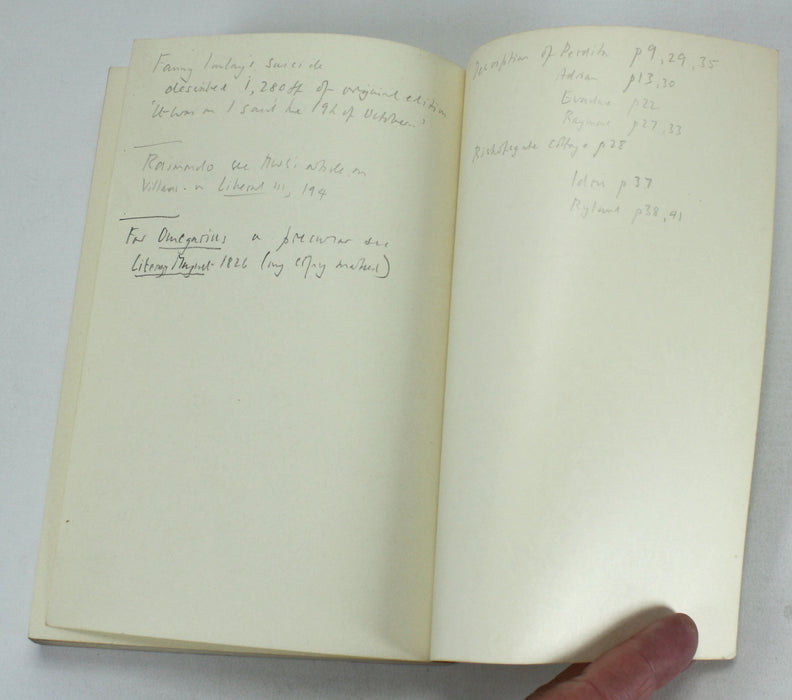 Fanny Imlay's suicide
described i, 280ff of original edition
"It was on I said the 19th of October."
Raimondo see MWS's article on
Villani in Liberal III, 194
For Omegarius a precursor see
Literary Magnet 1826 (my copy marked)
Description of Perdita p9, 29, 35
Adrian p13, 30
Evadne p22
Raymond p27, 33
Bishopsgate cottage p28
Idris p37
Ryland p38, 41